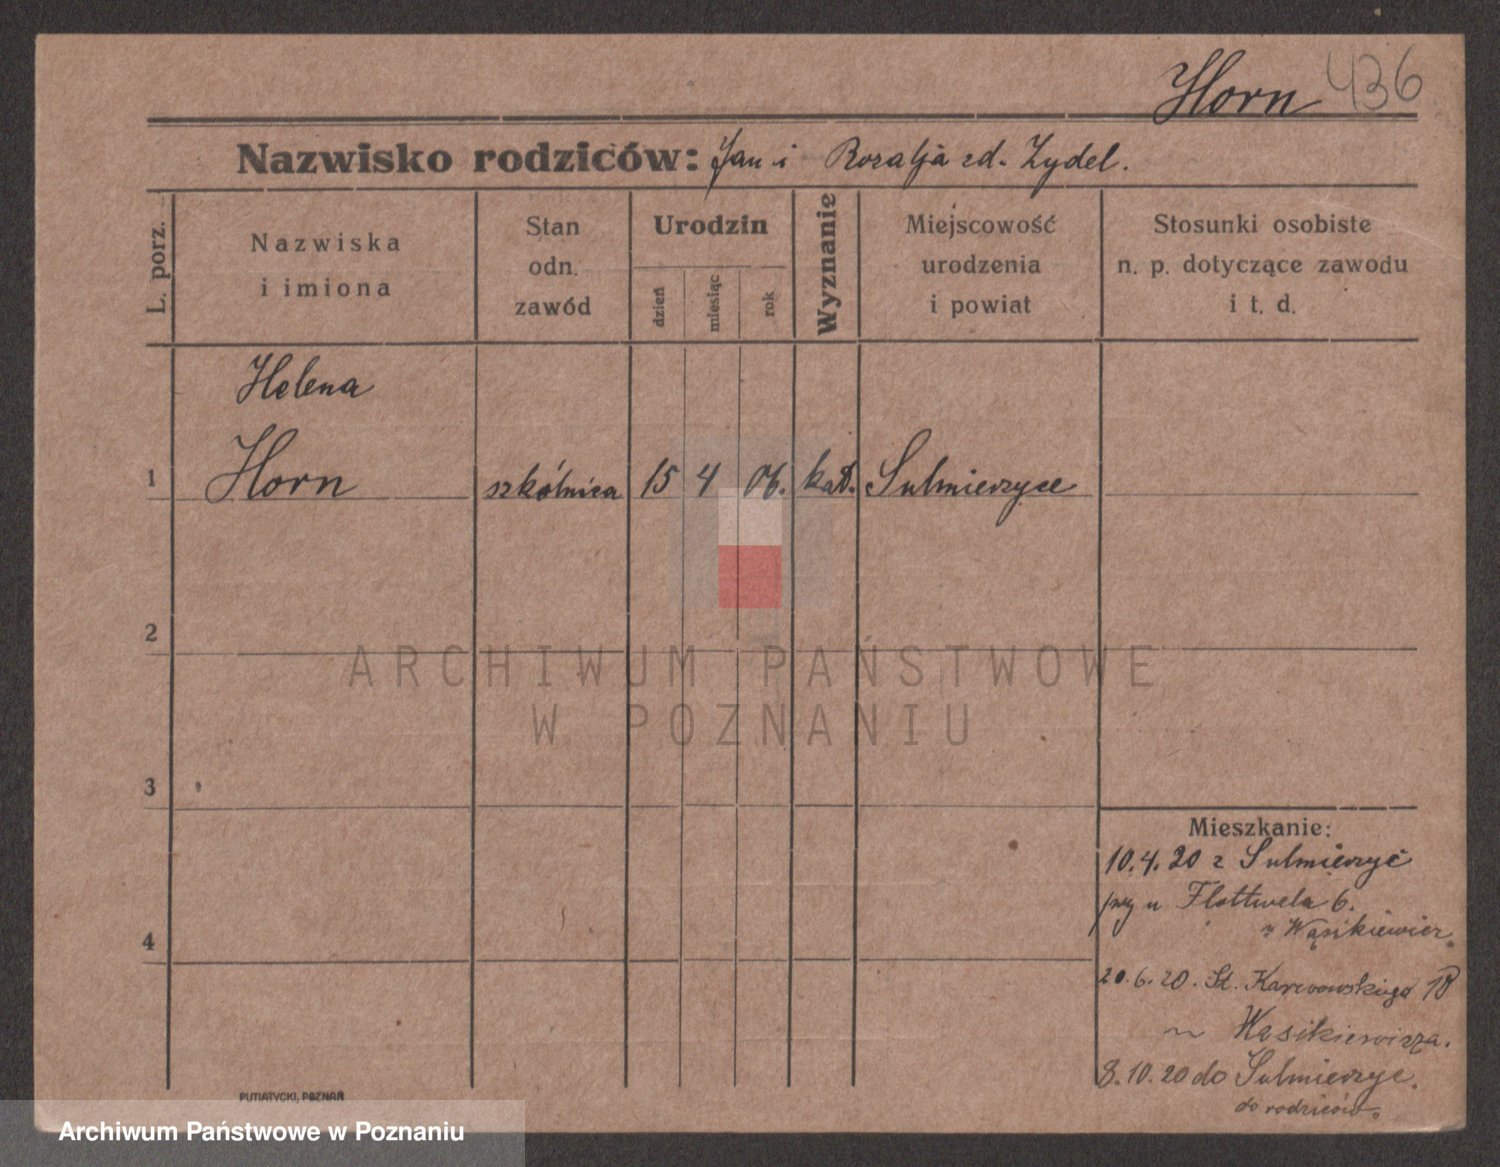 Horn 436
Nazwisko rodziców: Jan i Rozalja zd. Zydel.
L. porz.
Nazwiska
i imiona
Stan
odn.
zawód
Urodzin
dzień
miesiąc
rok
Wyznanie
Miejscowość
urodzenia
i powiat
Stosunki osobiste
n. p. dotyczące zawodu
i t. d.
Helena
1 Horn szkólnica 15 4 06. kat. Sulmierzyce
2
3
4
Mieszkanie:
10.4.20 z Sulmierzyc
Flottwela 6.
Wąsikiewicz.
20.6.20. St. Karwowskiego 18
Wąsikiewicza.
8.10.20 do Sulmierzyc.
do rodziców.
PUTIATYCKI, POZNAŃ
ARCHIWUM PAŃSTWOWE
W POZNANIU
Archiwum Państwowe w Poznaniu